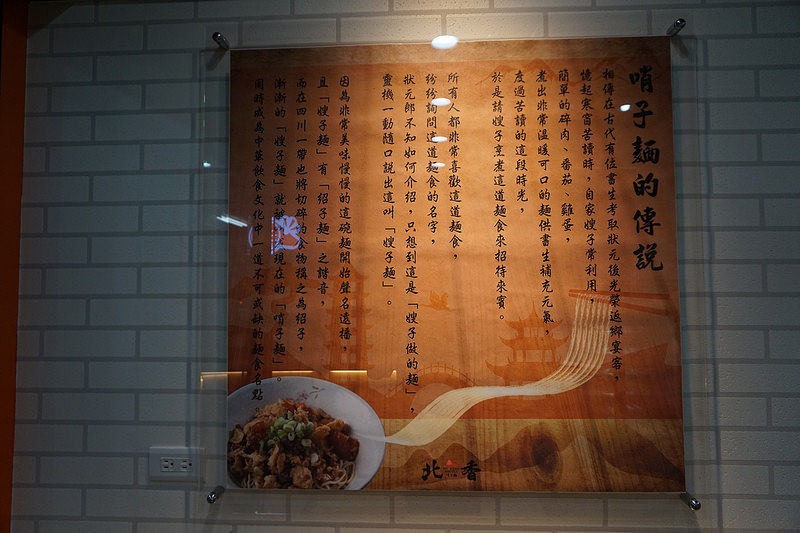 哨子麵的傳說
相傳在古代有位書生考取狀元後光榮返鄉宴客，
憶起寒窗苦讀時，自家嫂子常利用
簡單的碎肉、番茄、雞蛋，
煮出非常溫暖可口的麵供書生補充元氣，
度過苦讀的這段時光，
於是請嫂子烹煮這道麵食來招待來賓。
所有人都非常喜歡這道麵食，
紛紛詢問這道麵食的名字，
狀元郎不知如何介紹，只想到這是「嫂子做的麵」，
靈機一動隨口說出這叫「嫂子麵」。
因為非常美味慢慢的這碗麵開始聲名遠播，
且「嫂子麵」有「紹子麵」之諧音，
而在四川一帶也將切碎的食物稱之為紹子，
漸漸的「嫂子麵」就現在的「哨子麵」。
同時成為中華飲食文化中一道不可或缺的麵食名點。
北香